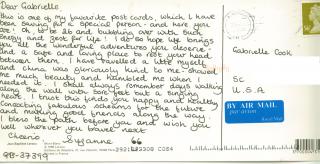 Dear Gabrielle,
This is one of my favourite post cards, which I have
been saving for a special person - and here you
are! Oh to be 21 and bubbling over with such
energy and zest for life! I do so hope life brings
you all the wonderful adventures you deserve
and a safe and loving place to rest your head
between them. I have travelled a little myself
and China was gloriously kind to me - showed
me much beauty and humbled me when I
needed it. I shall always remember days walking
along the wall with feet but a singing
heart. I trust this finds you happy and healthy
concocting fabulous schemes for the future
and making good friends along the way.
I bless the path before you and wish you
well wherever you travel next
Cheerio
Suzanne
98-37399
Gabrielle Cook
SC
U.S.A
BY AIR MAIL
par avion